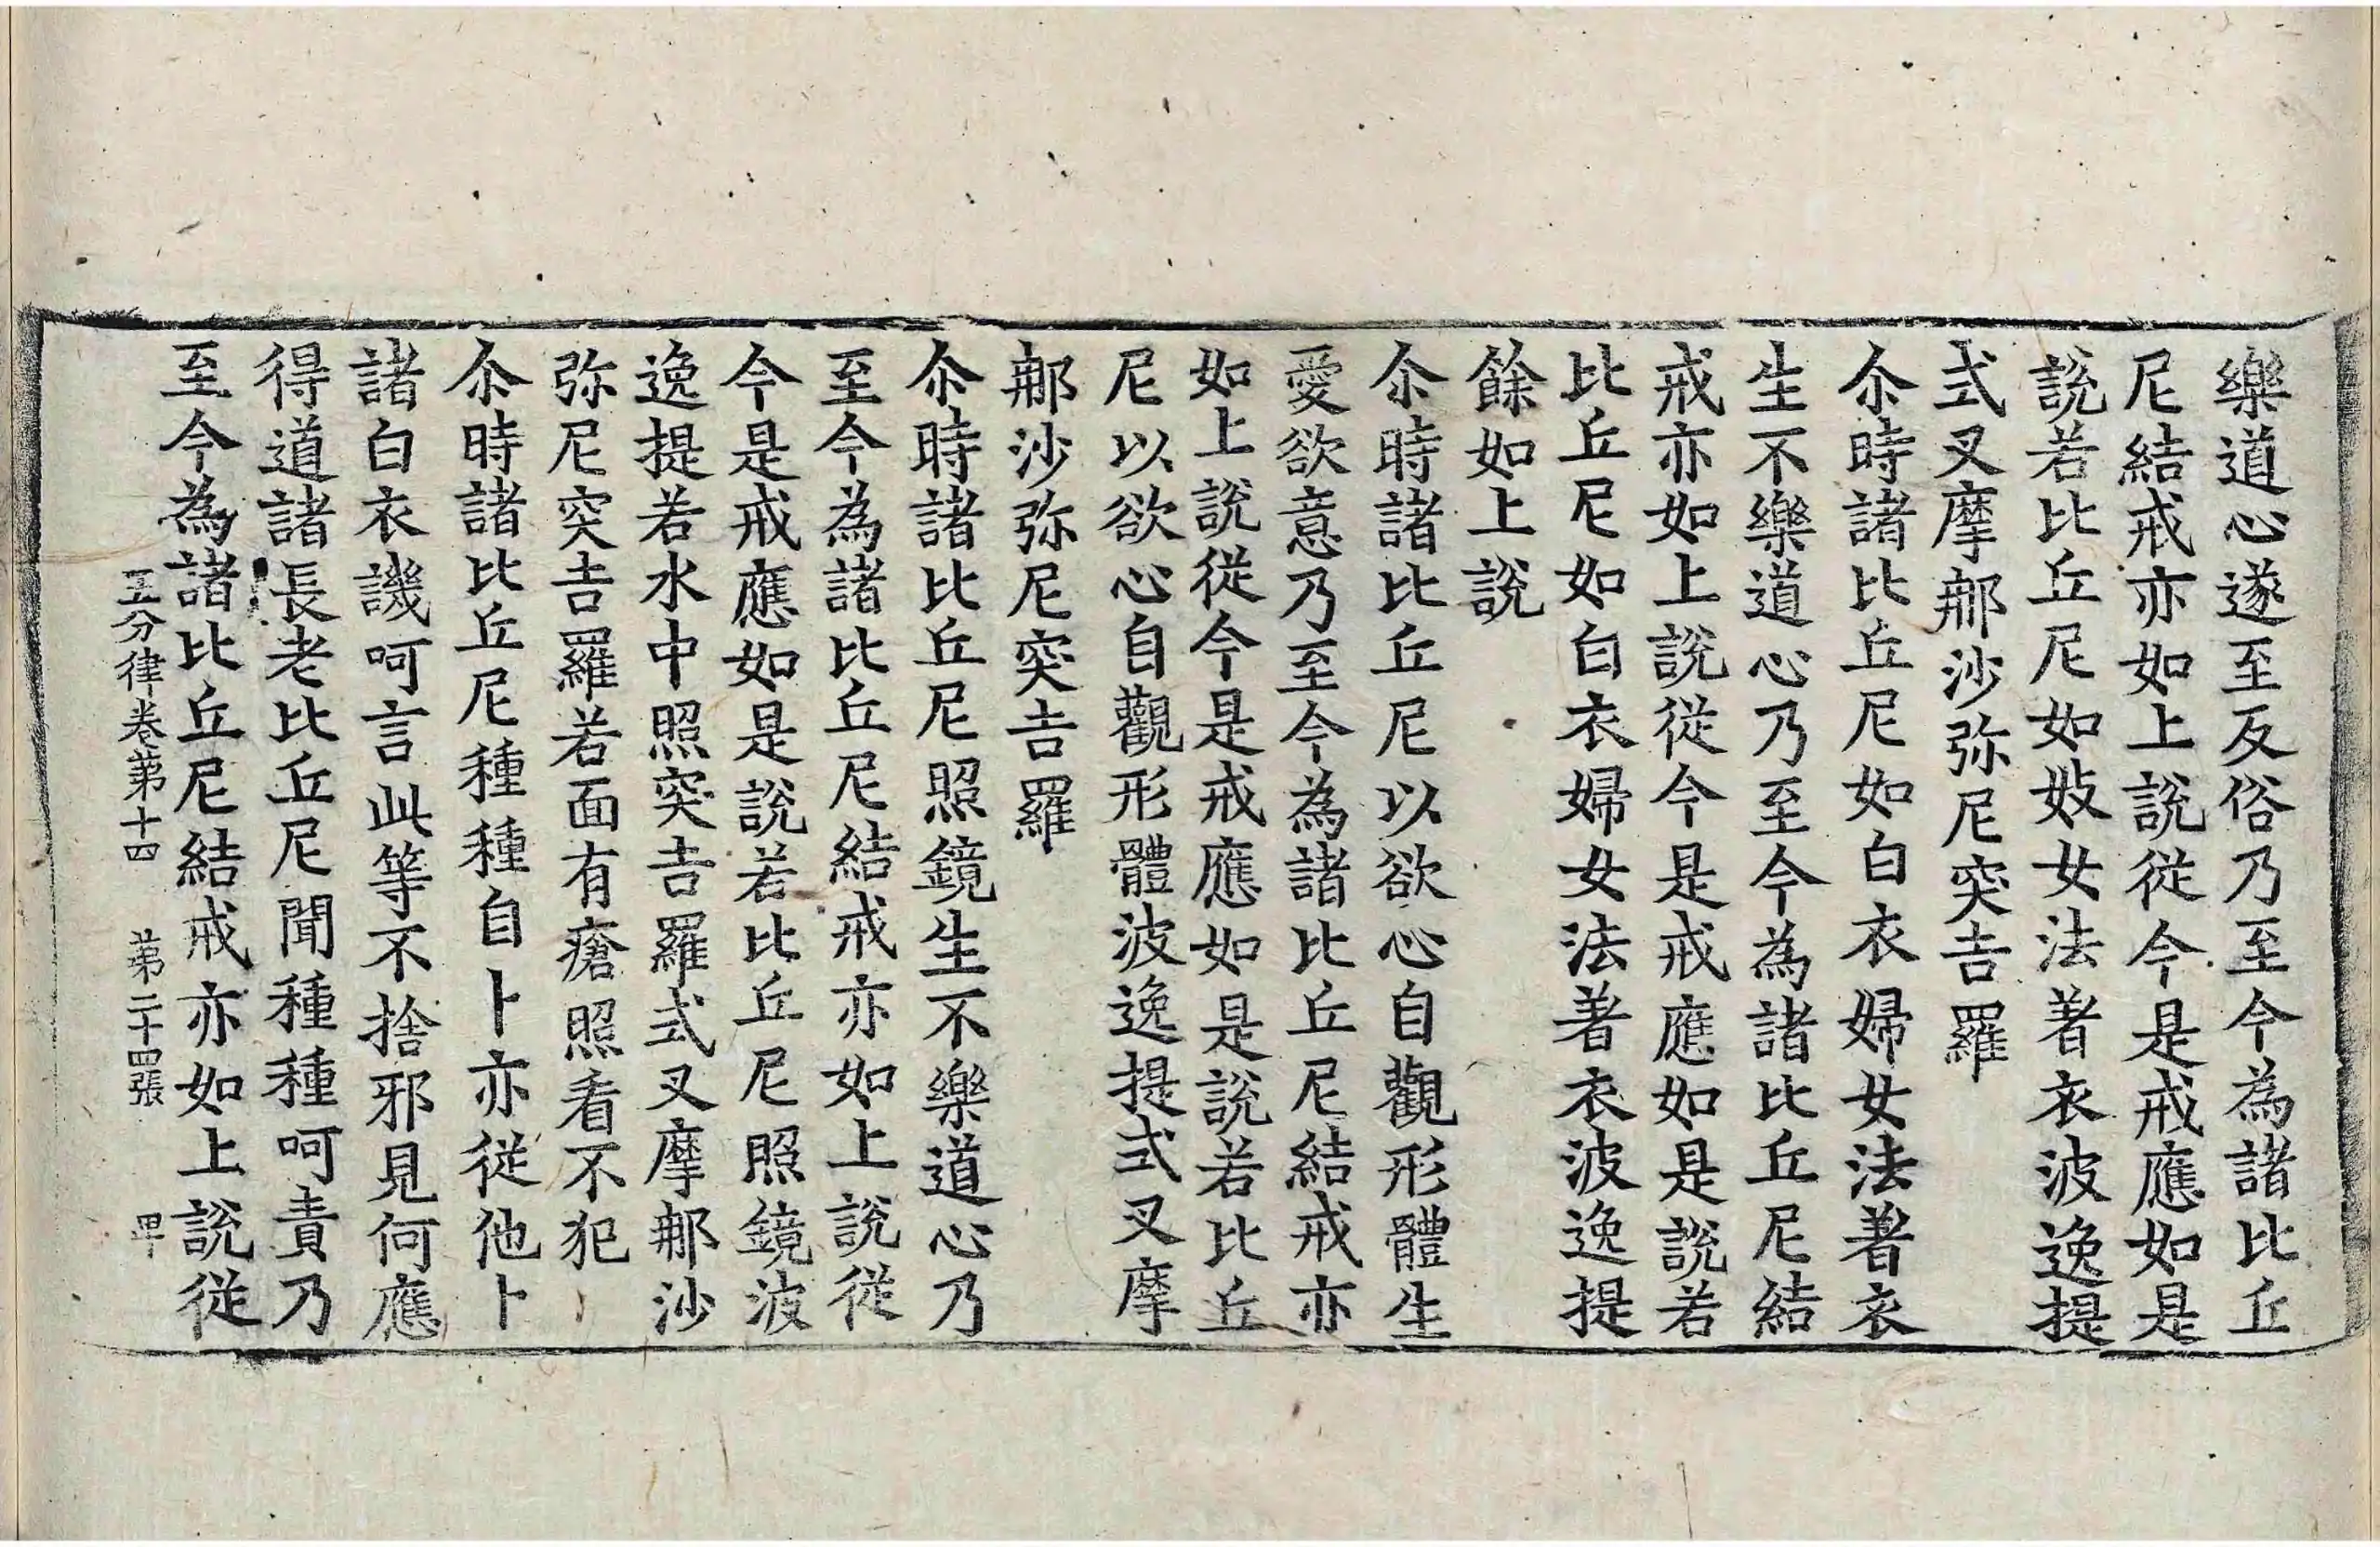 樂道心遂至反俗乃至今為諸比丘
尼結戒亦如上說從今是戒應如是
說若比丘尼如妓女法著衣波逸提
式叉摩那沙弥尼突吉羅
尒時諸比丘尼如白衣婦女法著衣
生不樂道心乃至今為諸比丘尼結
戒亦如上說從今是戒應如是說若
比丘尼如白衣婦女法著衣波逸提
餘如上說
尒時諸比丘尼以欲心自觀形體生
愛欲意乃至今為諸比丘尼結戒亦
如上說從今是戒應如是說若比丘
尼以欲心自觀形體波逸提式叉摩
那沙弥尼突吉羅
尒時諸比丘尼照鏡生不樂道心乃
至今為諸比丘尼結戒亦如上說從
今是戒應如是說若比丘尼照鏡波
逸提若水中照突吉羅式叉摩那沙
弥尼突吉羅若面有瘡照看不犯
尒時諸比丘尼種種自卜亦從他卜
諸白衣譏呵言此等不捨邪見何應
得道諸長老比丘尼聞種種呵責乃
至今為諸比丘尼結戒亦如上說從
五分律卷第十四 第二十四張 甲